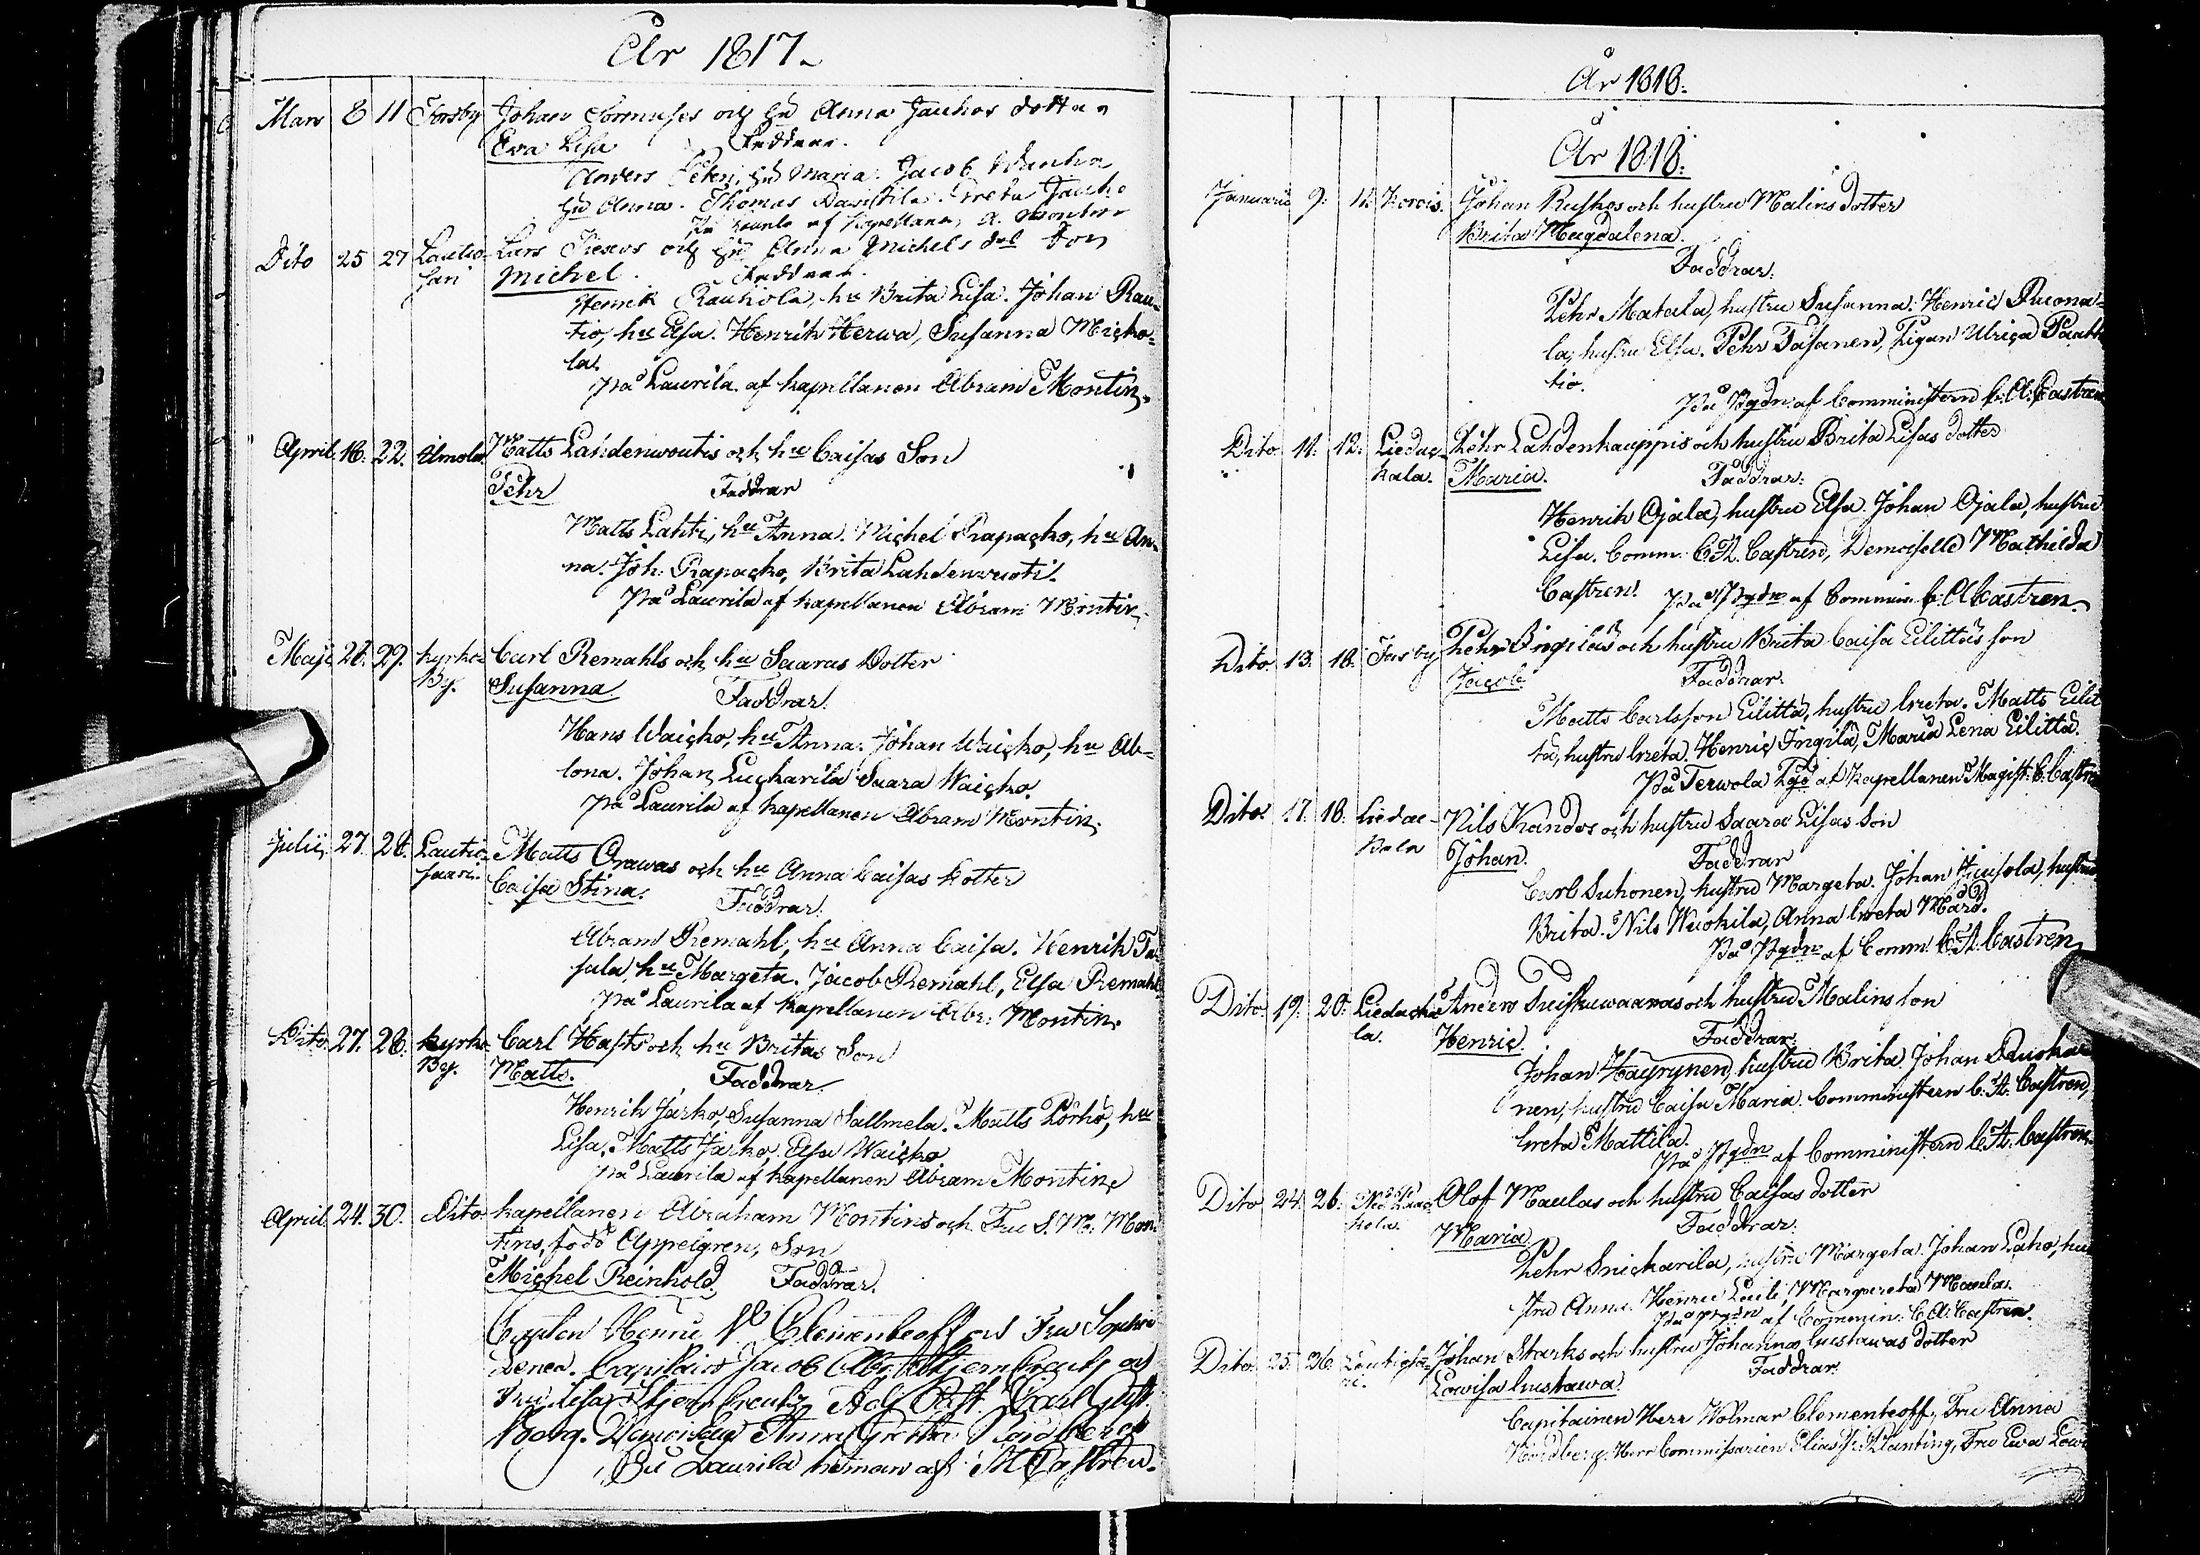 År 1817.
Mars 8 11 Forsby Johan och Hu Anna Jauhos dotter
Eva Lisa Faddrar.
Anders Hu Maria. Jacob
Hu Anna. Thomas Greta
af Kapellanen A. Montin
Dito 25 27 Lautio Lars och Hu Anna Michels dotr Son
sari Michel. Faddrar.
Henrik Raukola, hu Brita Lisa. Johan Rau-
tio, hu Elsa. Henrik Herwa, Susanna Micko-
la.
På Laurila af kapellanen Abram Montin.
April 18. 22. Almola Matts Lahdenwoutis och hu Caisas Son
Pehr Faddrar
Matts Lahti, hu Anna. Michel Rapacko, hu An-
na. Joh: Rapacko, Brita Lahdenwuoti.
På Laurila af kapellanen Abram Montin.
Maji 28. 29. kyrko- Carl Remahls och hu Saaras Dotter
By. Susanna Faddrar.
Hans Waicko, hu Anna. Johan Waicko, hu Ab-
lona. Johan Luckarila Saara Waicko.
På Laurila af kapellanen Abram Montin.
Julii 27. 28. Lautio- Matts Orawas och hu Anna Caisas Dotter
saari. Caisa Stina. Faddrar.
Abram Remahl, hu Anna Caisa. Henrik Ta-
sala, hu Margeta. Jacob Remahl, Elsa Remahl
på Laurila af kapellanen Abr: Montin.
Dito 27. 28. kyrko- Carl Hasts och hu Britas Son
By. Matts. Faddrar.
Henrik Jarko, Susanna Sallmela. Matts Pörhö, hu
Lisa, Matts Jarko, Elsa Waicko
på Laurila af kapellanen Abram Montin.
April 24. 30. Dito kapellanen Abraham Montins och Fru S. M. Mon-
tins, född Appelgren, Son
Michel Reinhold. Faddrar.
Capten Clementeoff och Fru Sophia
Lenea. Capitain Jacob Abr. Stjerncreutz och
Fru Lisa Stjerncreutz Adj. Past. Carl Gust.
Anna Gretha Nordberg
På Laurila heman af M Castrén.
År 1818.
År 1818.
Januarii 9. 11. Korois. Johan Ruskos och hustru Malins dotter
Brita Magdalena.
Faddrar.
Pehr Matala, hustru Susanna. Henric Ruona-
la, hustru Elsa. Pehr Tasanen, Pigan Ulrica Paatt-
tio.
På Pgdn. af Comministern C. A. Castren
Dito 11. 12. Liedac- Pehr Lahdenkauppis och hustru Brita Lisas dotter
kala. Maria. Faddrar.
Henrik Ojala, hustru Elsa. Johan Ojala, hustru
Lisa. Comm: C. A. Castren, Demoiselle Mathilda
Castren. På Pgdn af Commin. C: A Castren.
Dito 13. 18. Forsby Pehr Ingilas och hustru Brita Caisa Eilittäs son
Jacob. Faddrar.
Matts Carlsson Eilittä, hustru Greta. Matts Eilit-
tä, hustru Greta. Henric Ingilä, Maria Lena Eilittä.
På Terwola Pgd af Kapellanen Magist. C. Castren
Dito 17. 18. Liedac- Nils Kandos och hustru Saara Lisas Son
kala Johan. Faddrar
Carl Suhonen, hustru Margeta. Johan Juusola, hustru
Brita. Nils Wuokila, Anna Greta Mård.
På Pgdn af Comm: C. A. Castren.
Dito 19. 20. Liedacka- Anders Suiskuwaaras och hustru Malins son
la. Henric. Faddrar.
Johan Häyrynen, hustru Brita. Johan Ruoka-
nen, hustru Caisa Maria. Comministern C. A. Castren,
Greta Mattila.
På Pgdn af Comministern C. A. Castren.
Dito 24. 26. Olof Maulas och hustru Caisas dotter
kola Maria. Faddrar.
Pehr Snickarila, hustru Margeta. Johan Laho, hu-
stru Anna. Henric Margareta Maula.
På Pgdn af Commin: C. A. Castren.
Dito 25. 26. Lautiosa- Johan Starks och hustru Johanna Gustawas dotter
ri. Lowisa Gustawa. Faddrar.
Capitainen Herr Wolmar Clementeoff, Fru Anna
Nordberg. Herr Commissarien Elias Planting, Fru Ewa Low-